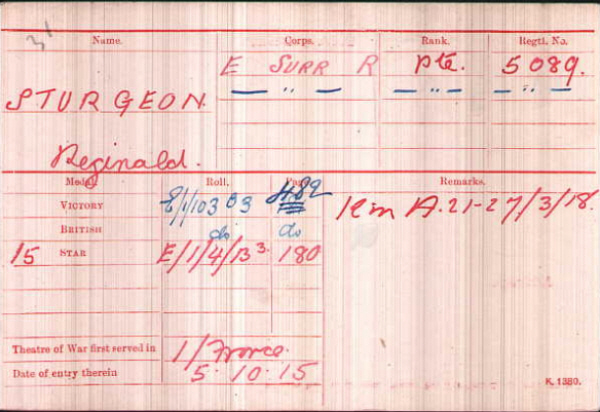 31
Name. Corps. Rank. Regtl. No.
E SURR R Pte. 5089.
STURGEON — " — — " — — " —
Reginald.
Medal. Roll. Page. Remarks.
VICTORY E/1/103 B3 482 K in A. 21-27/3/18.
BRITISH do do
15 STAR E/1/4/B3. 180
Theatre of War first served in 1/ France.
Date of entry therein 5.10.15
K. 1380.